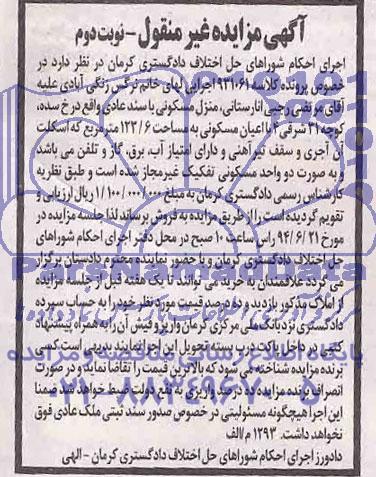 آگهی مزایده غیر منقول - نوبت دوم
اجرای احکام شوراهای حل اختلاف دادگستری کرمان در نظر دارد در
خصوص پرونده کلاسه ۹۳۱۰۶۱ اجرایی لهای خانم نرگس زنگی آبادی علیه
آقای مرتضی رجبی انارستانی، منزل مسکونی با سند عادی واقع در خ سده،
کوچه ۳۱ شرقی ۴ با اعیان مسکونی به مساحت ۱۲۳/۶ متر مربع که اسکلت
آن آجری و سقف تیرآهنی و دارای امتیاز آب، برق، گاز و تلفن می باشد
و به صورت دو واحد مسکونی تفکیک غیرمجاز شده است و طبق نظریه
کارشناس رسمی دادگستری کرمان به مبلغ ۱/۱۰۰/۰۰۰/۰۰۰ ریال ارزیابی و
تقویم گردیده است را از طریق مزایده به فروش برساند لذا جلسه مزایده در
مورخ ۹۴/۶/۲۱ راس ساعت ۱۰ صبح در محل دفتر اجرای احکام شوراهای
حل اختلاف دادگستری کرمان و با حضور نماینده محترم دادستان برگزار
می گردد علاقمندان به خرید می توانند تا یک هفته قبل از جلسه مزایده
از املاک مذکور بازدید و ده درصد قیمت مورد نظر خود را به حساب سپرده
دادگستری نزد بانک ملی مرکزی کرمان واریز و فیش آن را به همراه پیشنهاد
کتبی در داخل پاکت درب بسته تحویل این اجرا نمایند بدیهی است کسی
برنده مزایده شناخته می شود که بالاترین قیمت را تقاضا نماید و در صورت
انصراف برنده مزایده ده درصد واریزی به نفع دولت ضبط خواهد شد ضمنا
این اجرا هیچگونه مسئولیتی در خصوص صدور سند ثبتی ملک عادی فوق
نخواهد داشت. ۱۲۹۳ م/الف
دادورز اجرای احکام شوراهای حل اختلاف دادگستری کرمان - الهی
ParsNamadData
پایگاه اطلاع رسانی مناقصه و مزایده
۰۲۱-۸۸۳۴۹۶۷۰